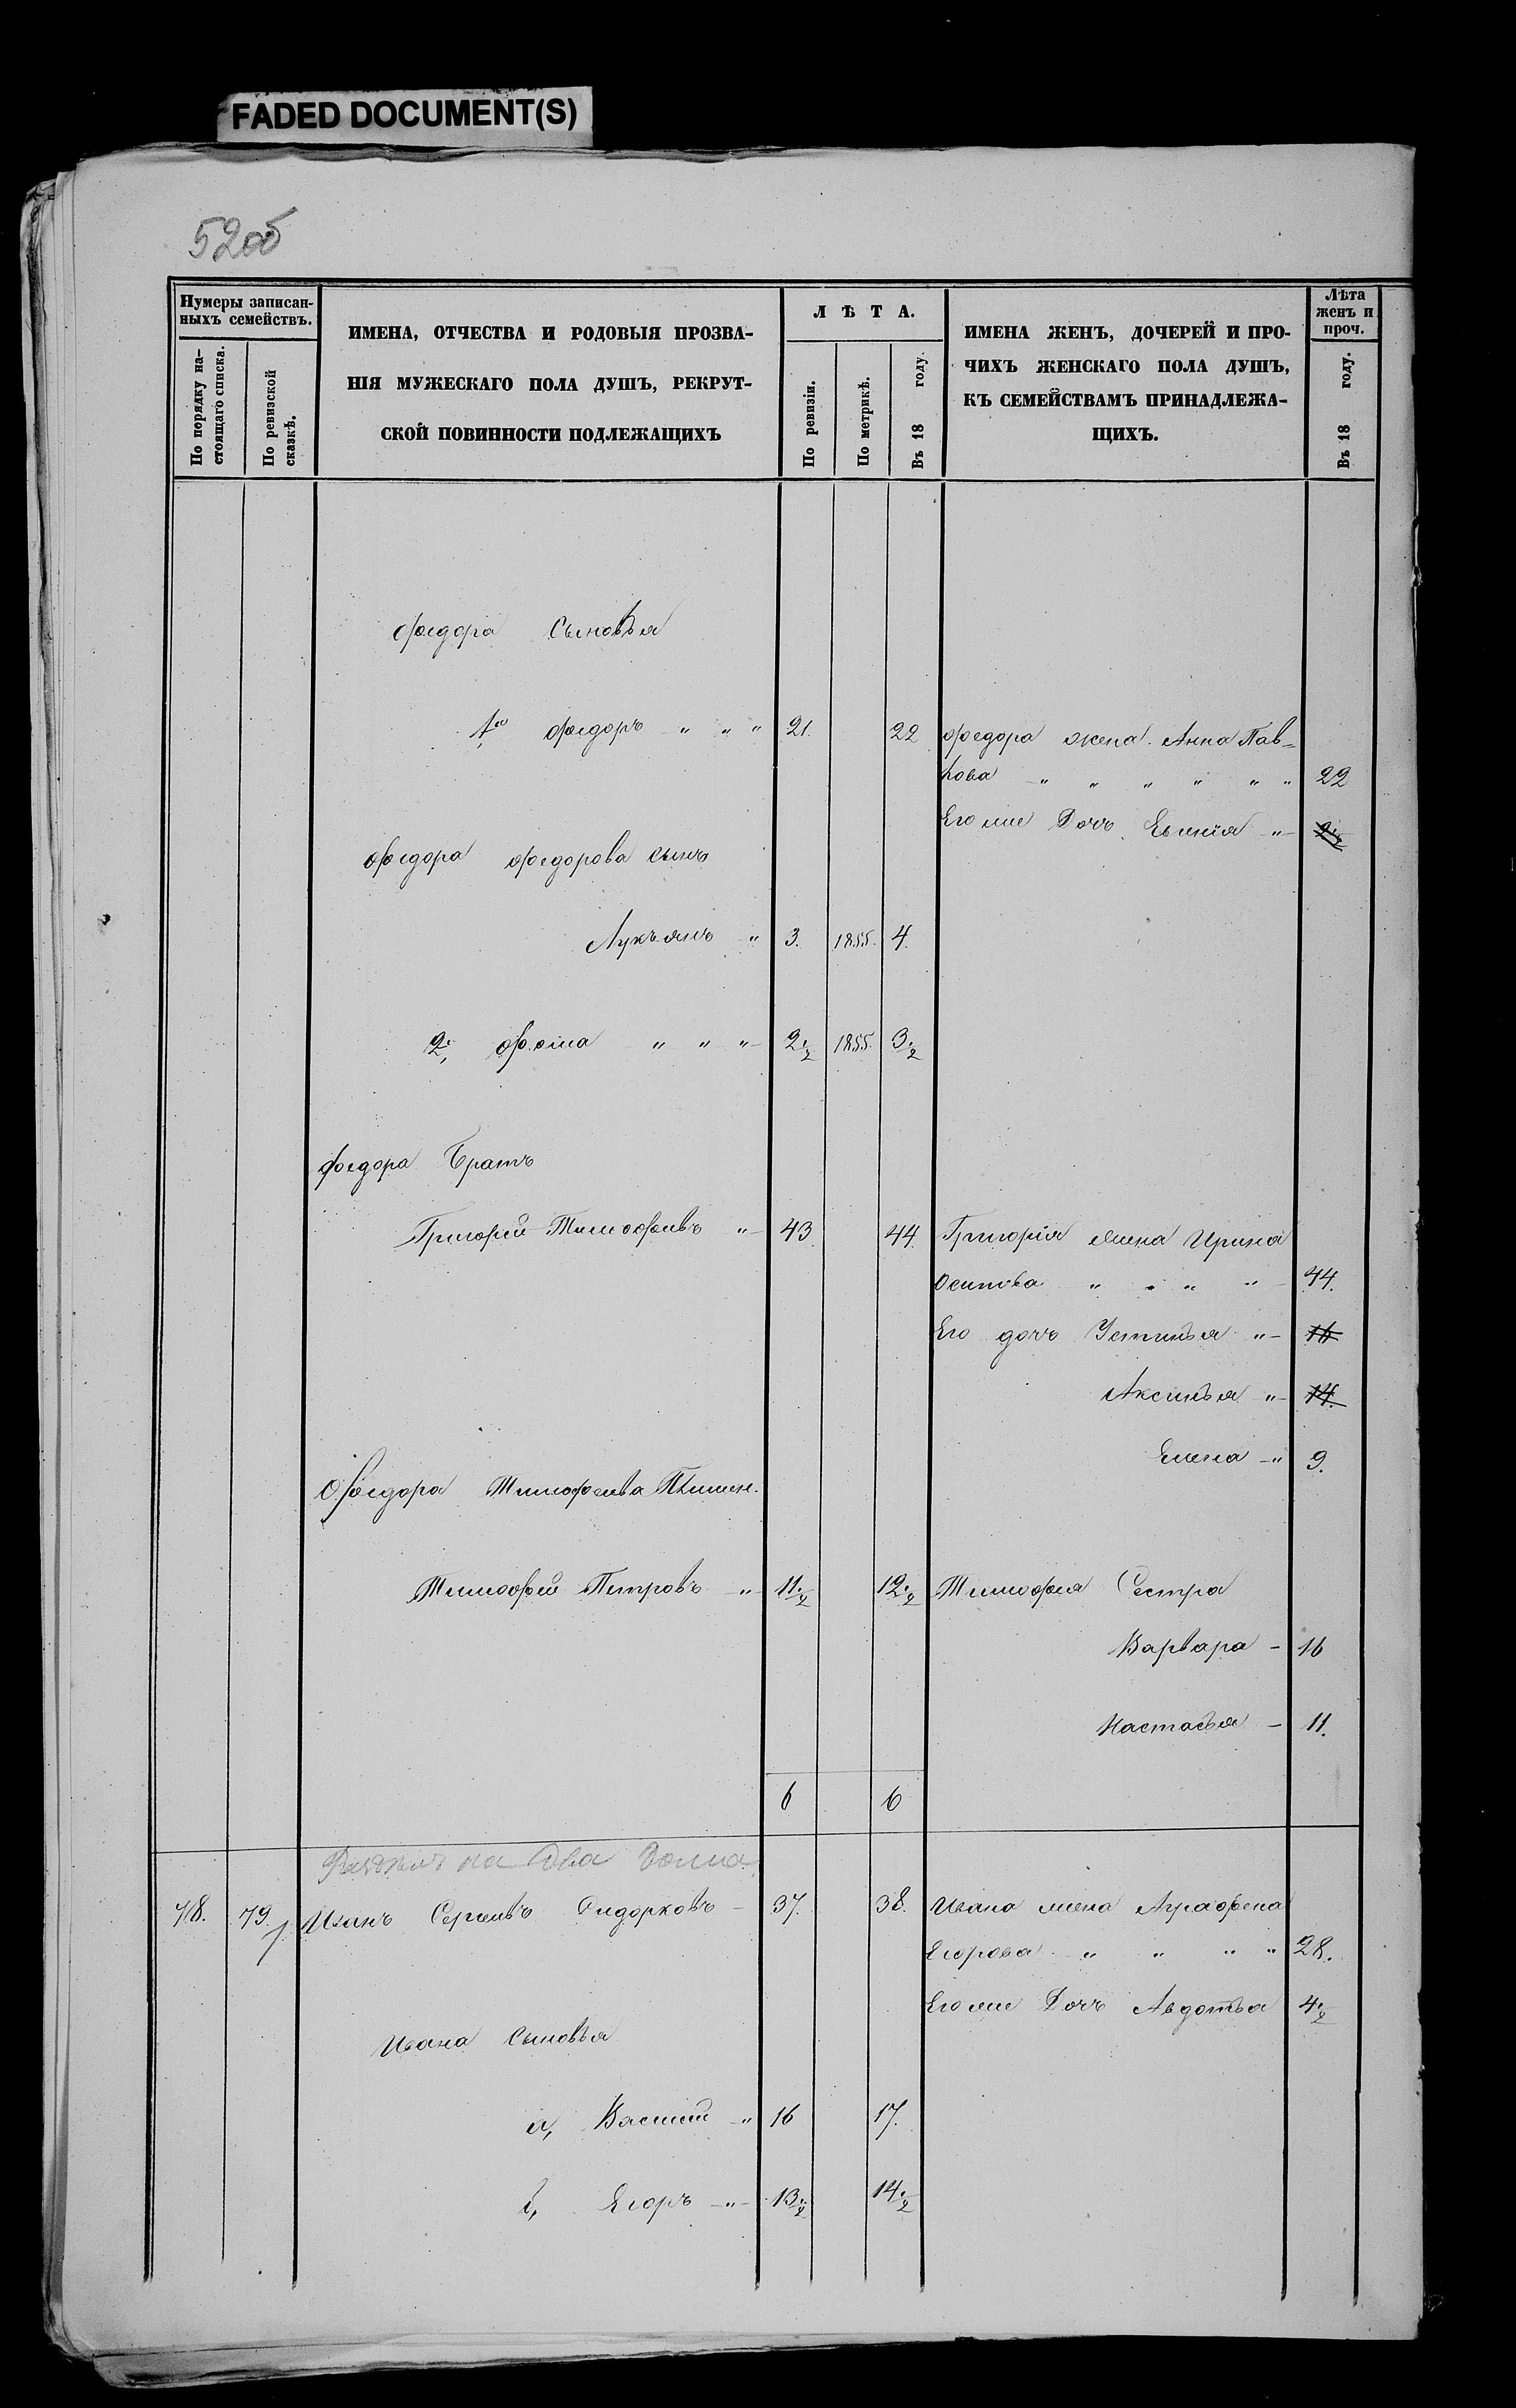 FADED DOCUMENT(S)
52об
Нумеры записан-
ныхъ семействъ.
По порядку на-
стоящаго списка.
По ревизской
сказкѣ.
ИМЕНА, ОТЧЕСТВА И РОДОВЫЯ ПРОЗВА-
НІЯ МУЖЕСКАГО ПОЛА ДУШЪ, РЕКРУТ-
СКОЙ ПОВИННОСТИ ПОДЛЕЖАЩИХЪ
ЛѢТА.
По ревизіи.
По метрикѣ.
Въ 18 году.
ИМЕНА ЖЕНЪ, ДОЧЕРЕЙ И ПРО-
ЧИХЪ ЖЕНСКАГО ПОЛА ДУШЪ,
КЪ СЕМЕЙСТВАМЪ ПРИНАДЛЕЖА-
ЩИХЪ.
Лѣта
женъ и
проч.
Въ 18 году.
Федора Сыновья
1й Федоръ " " " 21. 22 Федора жена Анна Пав=
лова " " " " " " 22
Его же Дочь "
Федора Федорова сынъ
Лукьянъ " 3. 1855. 4.
2й, " " " 2½ 1855. 3½
Федора Братъ
Григорій Тимофеевъ " 43. 44. Григорія жена Ирина
Осипова " " " " 44.
Его дочь Устинья " 16
Аксинья " 14.
Елена " 9.
Федора Тимофеева Племен.
Тимофей Петровъ " 11½ 12½ Тимофея Сестра
Варвара - 16
Настасья - 11.
6 6
на два дома
78. 79. Иванъ Сергеевъ Сидорковъ - 37. 38. Ивана жена Аграфена
Егорова " " " " 28.
Его же Дочь Авдотья 4½
Ивана Сыновья
а, Василій " 16 17.
б, Егоръ " 13½ 14½